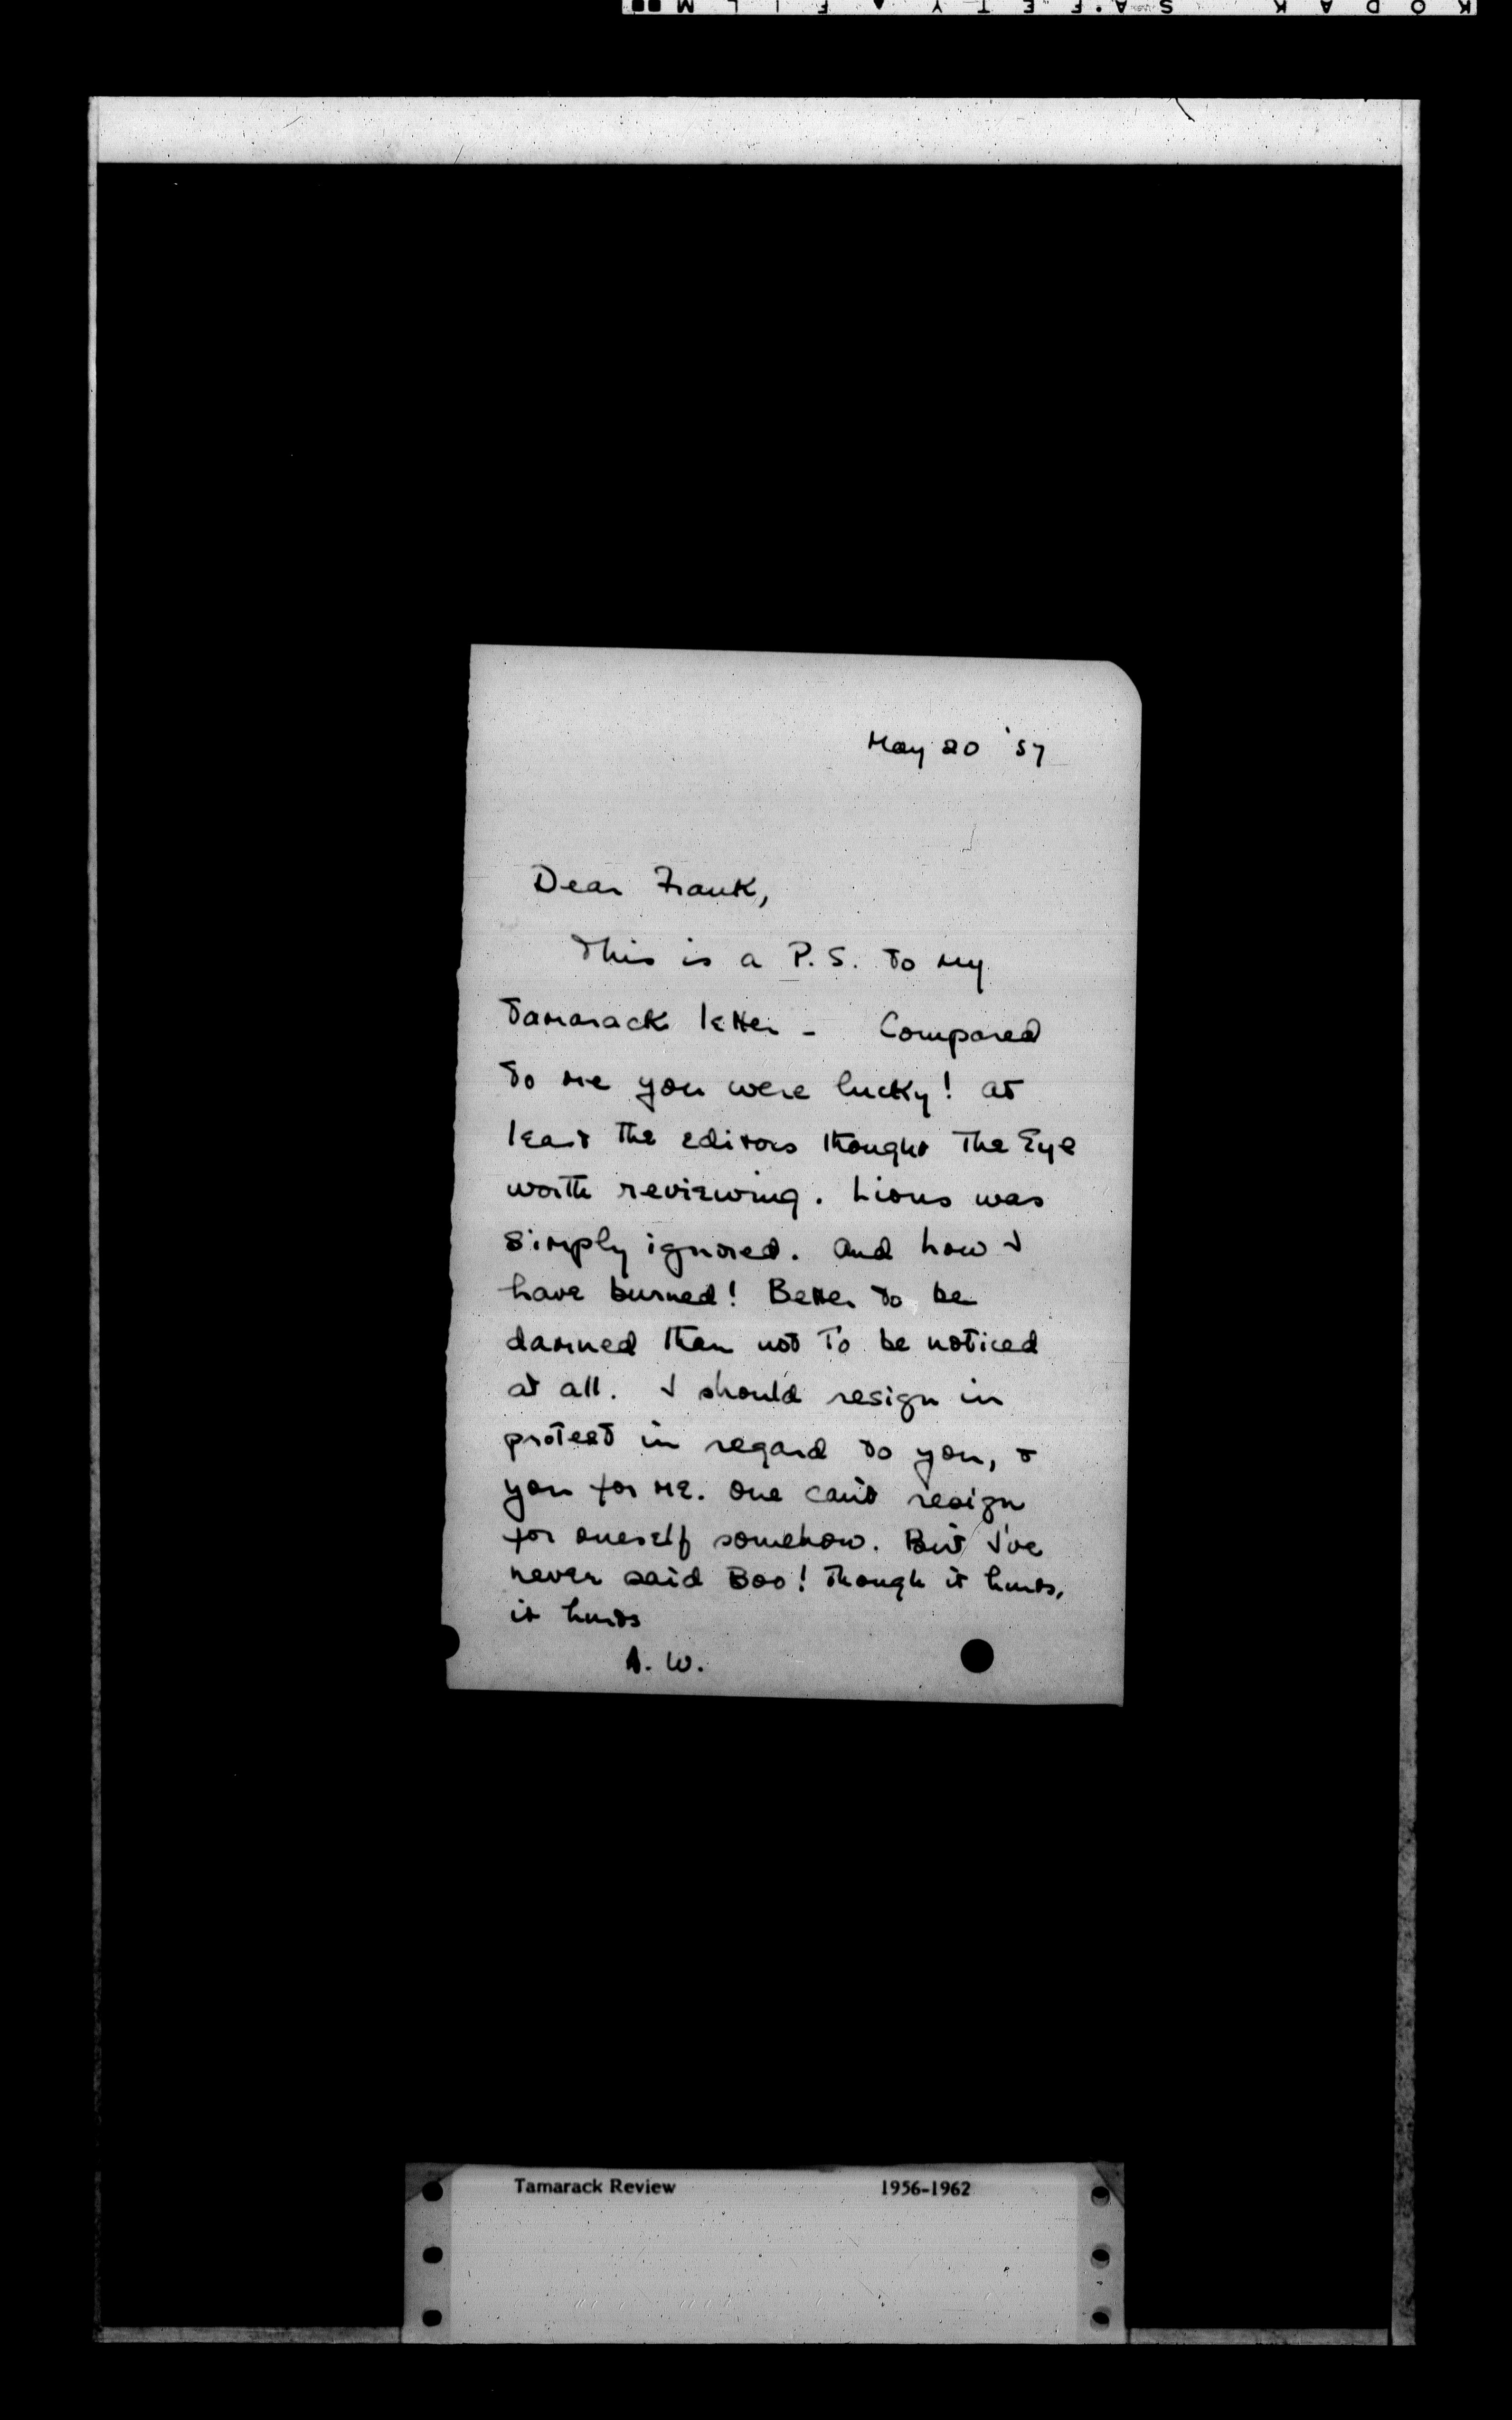 KODAK SAFETY FILM
May 20 '57
Dear Frank,
This is a P.S. to my
Tamarack letter – Compared
to me you were lucky! at
least the editors thought The Eye
worth reviewing. Lions was
simply ignored. And how I
have burned! Better to be
damned than not to be noticed
at all. I should resign in
protest in regard to you, &
you for me. One can't resign
for oneself somehow. But I've
never said Boo! though it hurts,
it hurts
A. W.
Tamarack Review 1956-1962